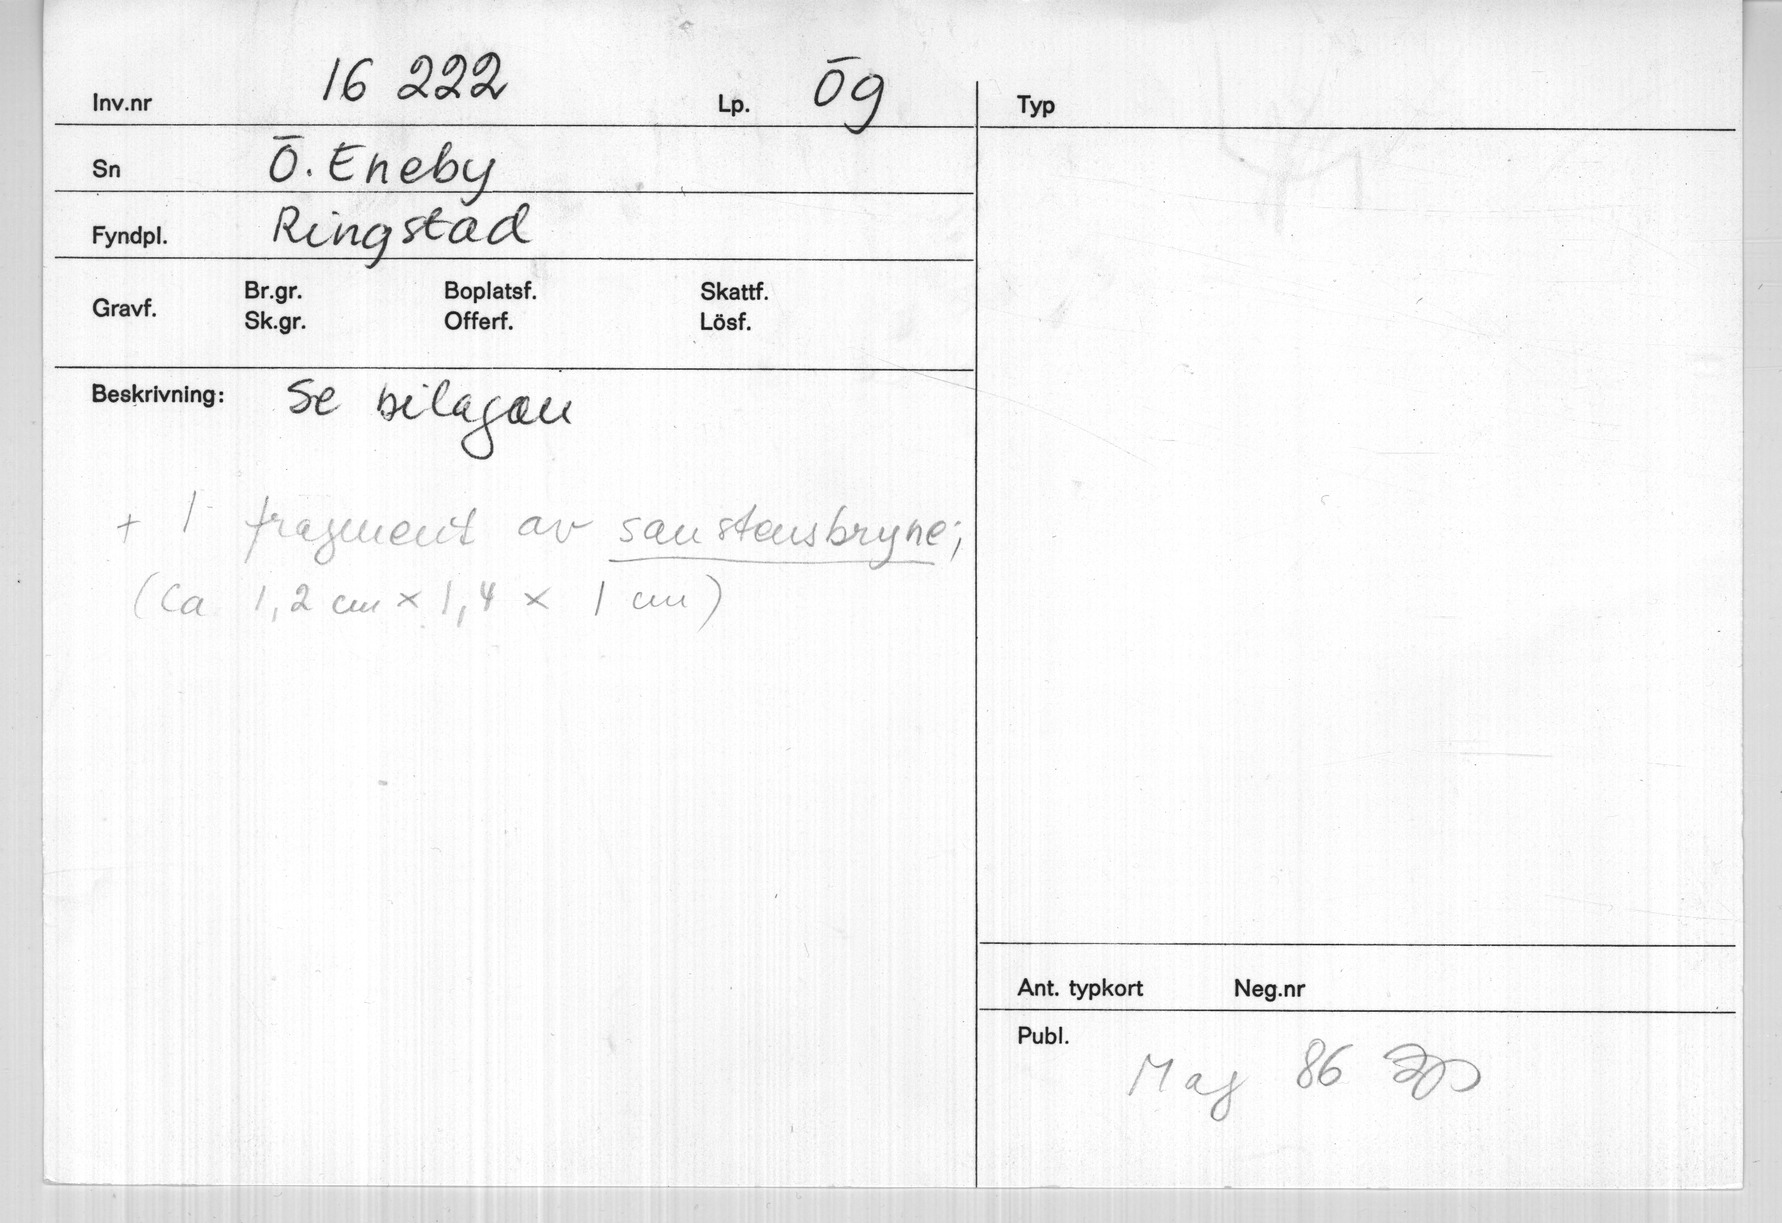 Inv.nr 16 222 Lp. Ög
Sn Ö. Eneby
Fyndpl. Ringstad
Gravf. Br.gr. Boplatsf. Skattf.
Sk.gr. Offerf. Lösf.
Beskrivning: Se bilagan
+ 1 fragment av sanstensbryne;
(Ca 1,2 cm x 1,4 x 1 cm)
Typ
Ant. typkort Neg.nr
Publ.
Mag 86